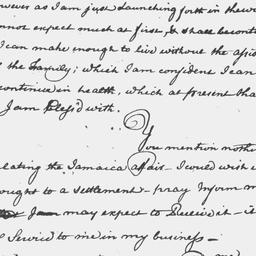 however as I am just Launching forth in the wor
nnot expect much at first, & shall be conte
I can make enough to live without the assis
the Family; which I am confident I can
continue in health, which at present tha
I am Bless'd with.
You mention noth
elating the Jamaica affair - I could wish i
ought to a settlement - pray Inform m
I am may expect to Receive it - it
Service to me in my business -